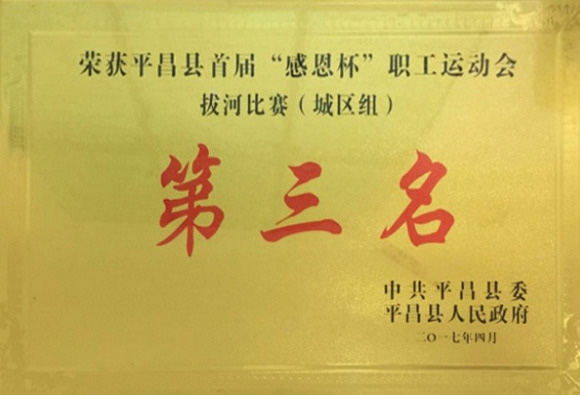 荣获平昌县首届“感恩杯”职工运动会
拔河比赛（城区组）
第三名
中共平昌县委
平昌县人民政府
二〇一七年四月